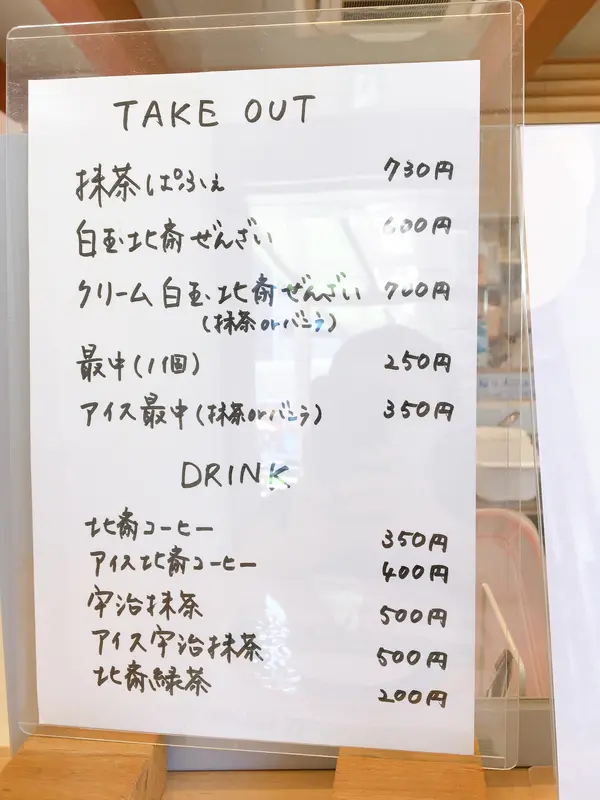 TAKE OUT
抹茶ぱふぇ 730円
白玉北斎ぜんざい 600円
クリーム白玉北斎ぜんざい 700円
(抹茶orバニラ)
最中(1個) 250円
アイス最中(抹茶orバニラ) 350円
DRINK
北斎コーヒー 350円
アイス北斎コーヒー 400円
宇治抹茶 500円
アイス宇治抹茶 500円
北斎緑茶 200円